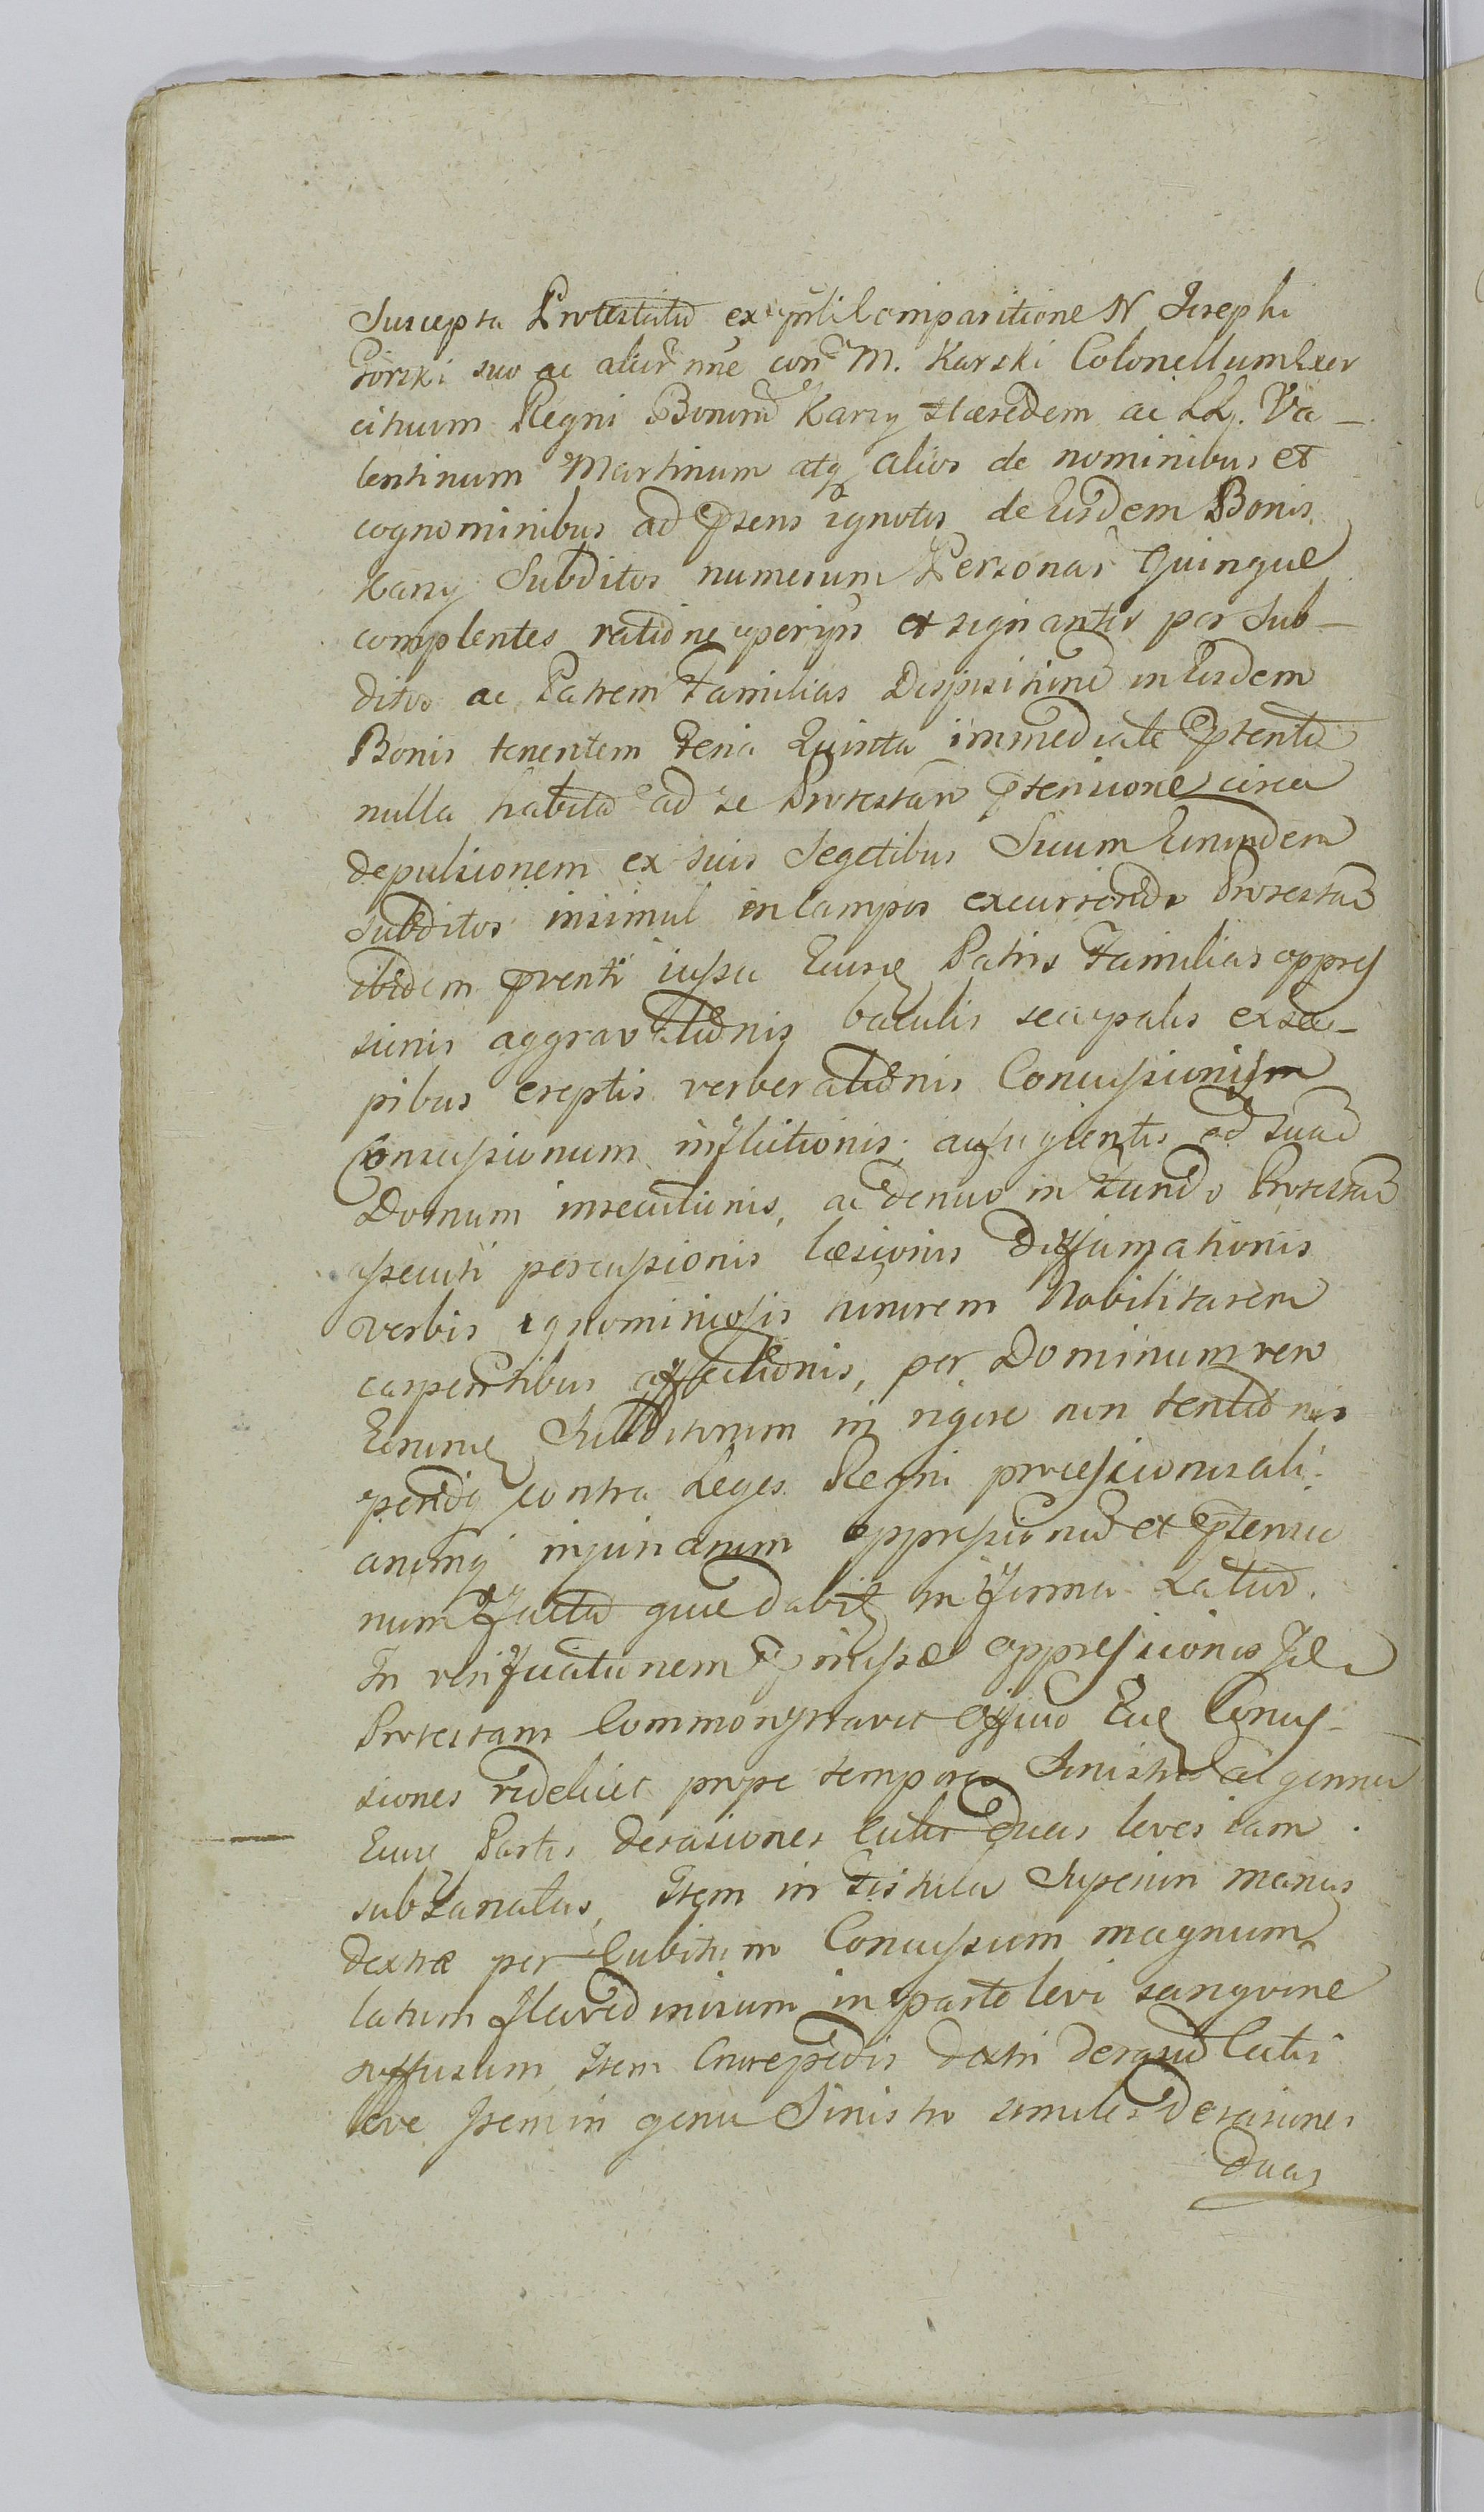 Suscepta Protestatio ex Comparitione N Josephi
Górski suo ac alior nne con M. Karski Colonellum Exer
cituum Regni Bonorum Karzy Hæredem ac LL. Va-
lentinum Martinum atq alios de nominibus et
cognominibus ad psens ignotos de Eisdem Bonis
Karzy Subditos numerum Personar Quinque
complentes ratione et signanter per Sub-
ditos ac Patrem Familias Dispositione in Eisdem
Bonis tenentem Feria Quinta immediate
nulla habita ad se Protestan ptensione circa
depulsionem ex suis Segetibus Suum Eorundem
Subditos insimul in Campos excurrendo Protestan
ibidem pventi iussu Eiusq Patris Familias oppres
sionis aggravationis baculis
pibus ereptis verberationis Concussionis
Concussionum inflictionis, aufugientis ad suam
Domum insecutionis, ac denuo in Fundo Protestan
assecuti percussionis læsionis Diffamationis
verbis ignominiosis honorem Nobilitarem
carpentibus affectionis, per Dominum vero
Eorunq Subditorum in rigore non tentionis
contra Leges Regni processionis ali
arumq injuriarum oppressionum et ptensio
num facta que dabitq in Forma Latior.
In verificationem pmissæ oppressionis Jde
Protestans Commonstravit Officio Eiq Concus-
siones videlicet prope tempora Sinistra ac gennu
Eiusq Partis Derasiones Cutis Duas leves iam
subsanatas, Item in Fistula Superiori manus
dextræ per Cubitum Concussum magnum
latum flavedinisum in parte levi sangvine
suffusum, Item Crure pedis dextri derasum Cutis
leve Item in genu Sinistro similes Derasiones
duas